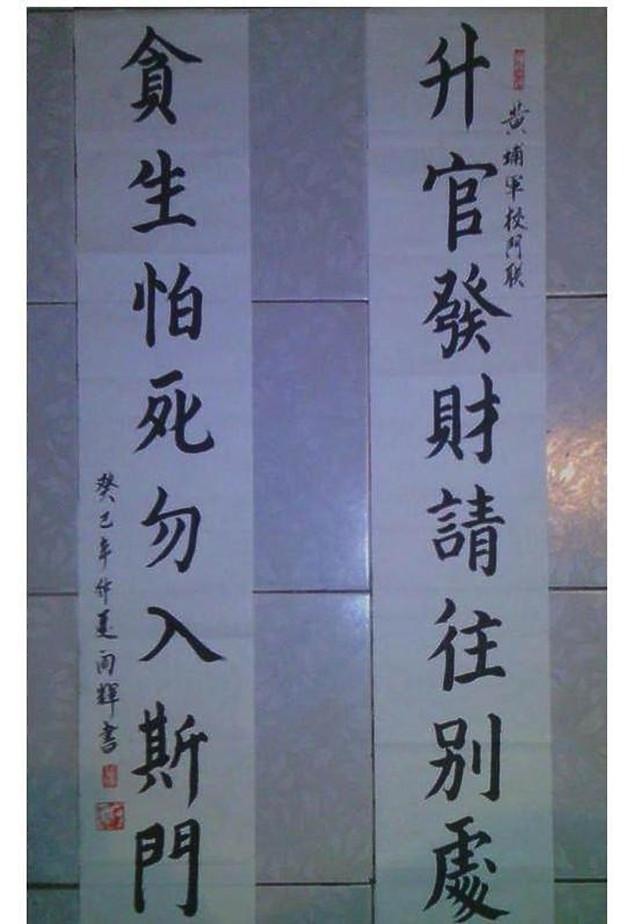 黄埔军校门联
升官發財請往別處
貪生怕死勿入斯門
癸巳年仲夏雨輝書